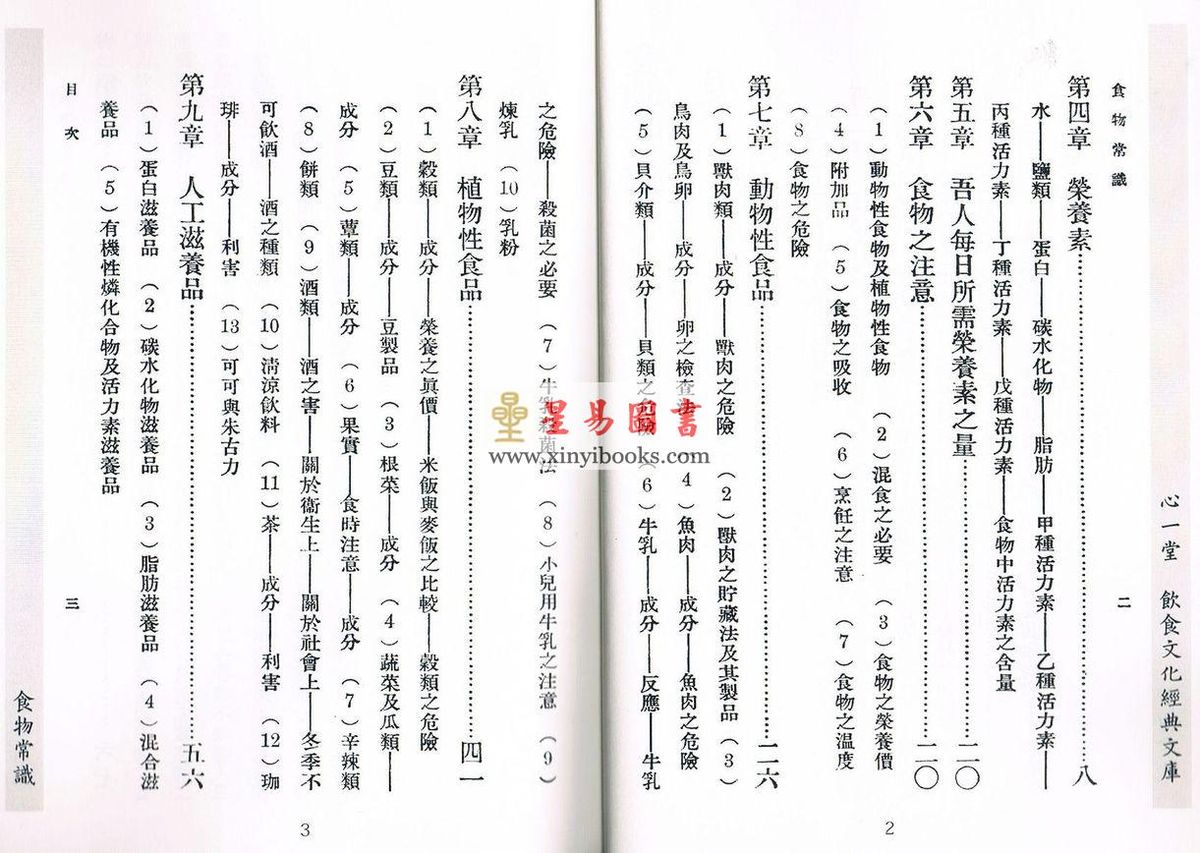 心一堂　飲食文化經典文庫
食物常識
二
第四章　榮養素…………八
水——鹽類——蛋白——碳水化物——脂肪——甲種活力素——乙種活力素——
丙種活力素——丁種活力素——戊種活力素——食物中活力素之含量
第五章　吾人每日所需榮養素之量…………二〇
第六章　食物之注意…………二〇
（1）動物性食物及植物性食物　（2）混食之必要　（3）食物之榮養價
（4）附加品　（5）食物之吸收　（6）烹飪之注意　（7）食物之温度
（8）食物之危險
第七章　動物性食品…………二六
（1）獸肉類——成分——獸肉之危險　（2）獸肉之貯藏法及其製品　（3）
鳥肉及鳥卵——成分——卵之檢查法　（4）魚肉——成分——魚肉之危險
（5）貝介類——成分——貝類之危險　（6）牛乳——成分——反應——牛乳
2
之危險——殺菌之必要　（7）牛乳殺菌法　（8）小兒用牛乳之注意　（9）
煉乳　（10）乳粉
第八章　植物性食品…………四一
（1）穀類——成分——榮養之眞價——米飯與麥飯之比較——穀類之危險
（2）豆類——成分——豆製品　（3）根菜——成分　（4）蔬菜及瓜類——
成分　（5）蕈類——成分　（6）果實——食時注意——成分　（7）辛辣類
（8）餅類　（9）酒類——酒之害——關於衞生上——關於社會上——冬季不
可飲酒——酒之種類　（10）淸涼飲料　（11）茶——成分——利害　（12）珈
琲——成分——利害　（13）可可與朱古力
第九章　人工滋養品…………五六
（1）蛋白滋養品　（2）碳水化物滋養品　（3）脂肪滋養品　（4）混合滋
養品　（5）有機性燐化合物及活力素滋養品
目次
三
食物常識
3
星易圖書
www.xinyibooks.com